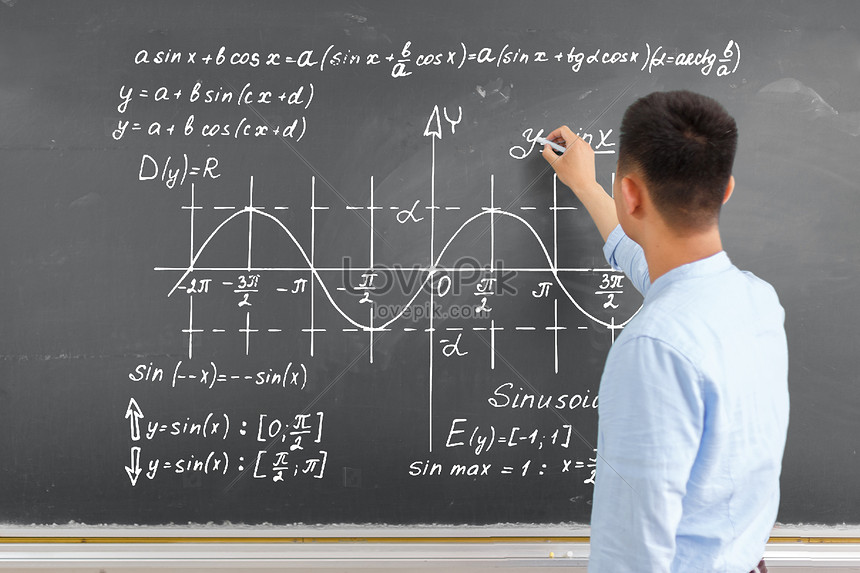 a sin x + b cos x = a (sin x + b/a cos x) = a (sin x + tg α cos x) (α = arctg b/a)
y = a + b sin (cx + d)
y = a + b cos (cx + d)
Y
y = sin x
D(y) = R
α
-2π -3π/2 -π -π/2 0 π/2 π 3π/2
LovePik
lovepik.com
-α
sin (--x) = -- sin(x)
Sinusoid
⇑ y = sin(x) : [0; π/2]
E(y) = [-1; 1]
⇓ y = sin(x) : [π/2; π]
sin max = 1 : x =